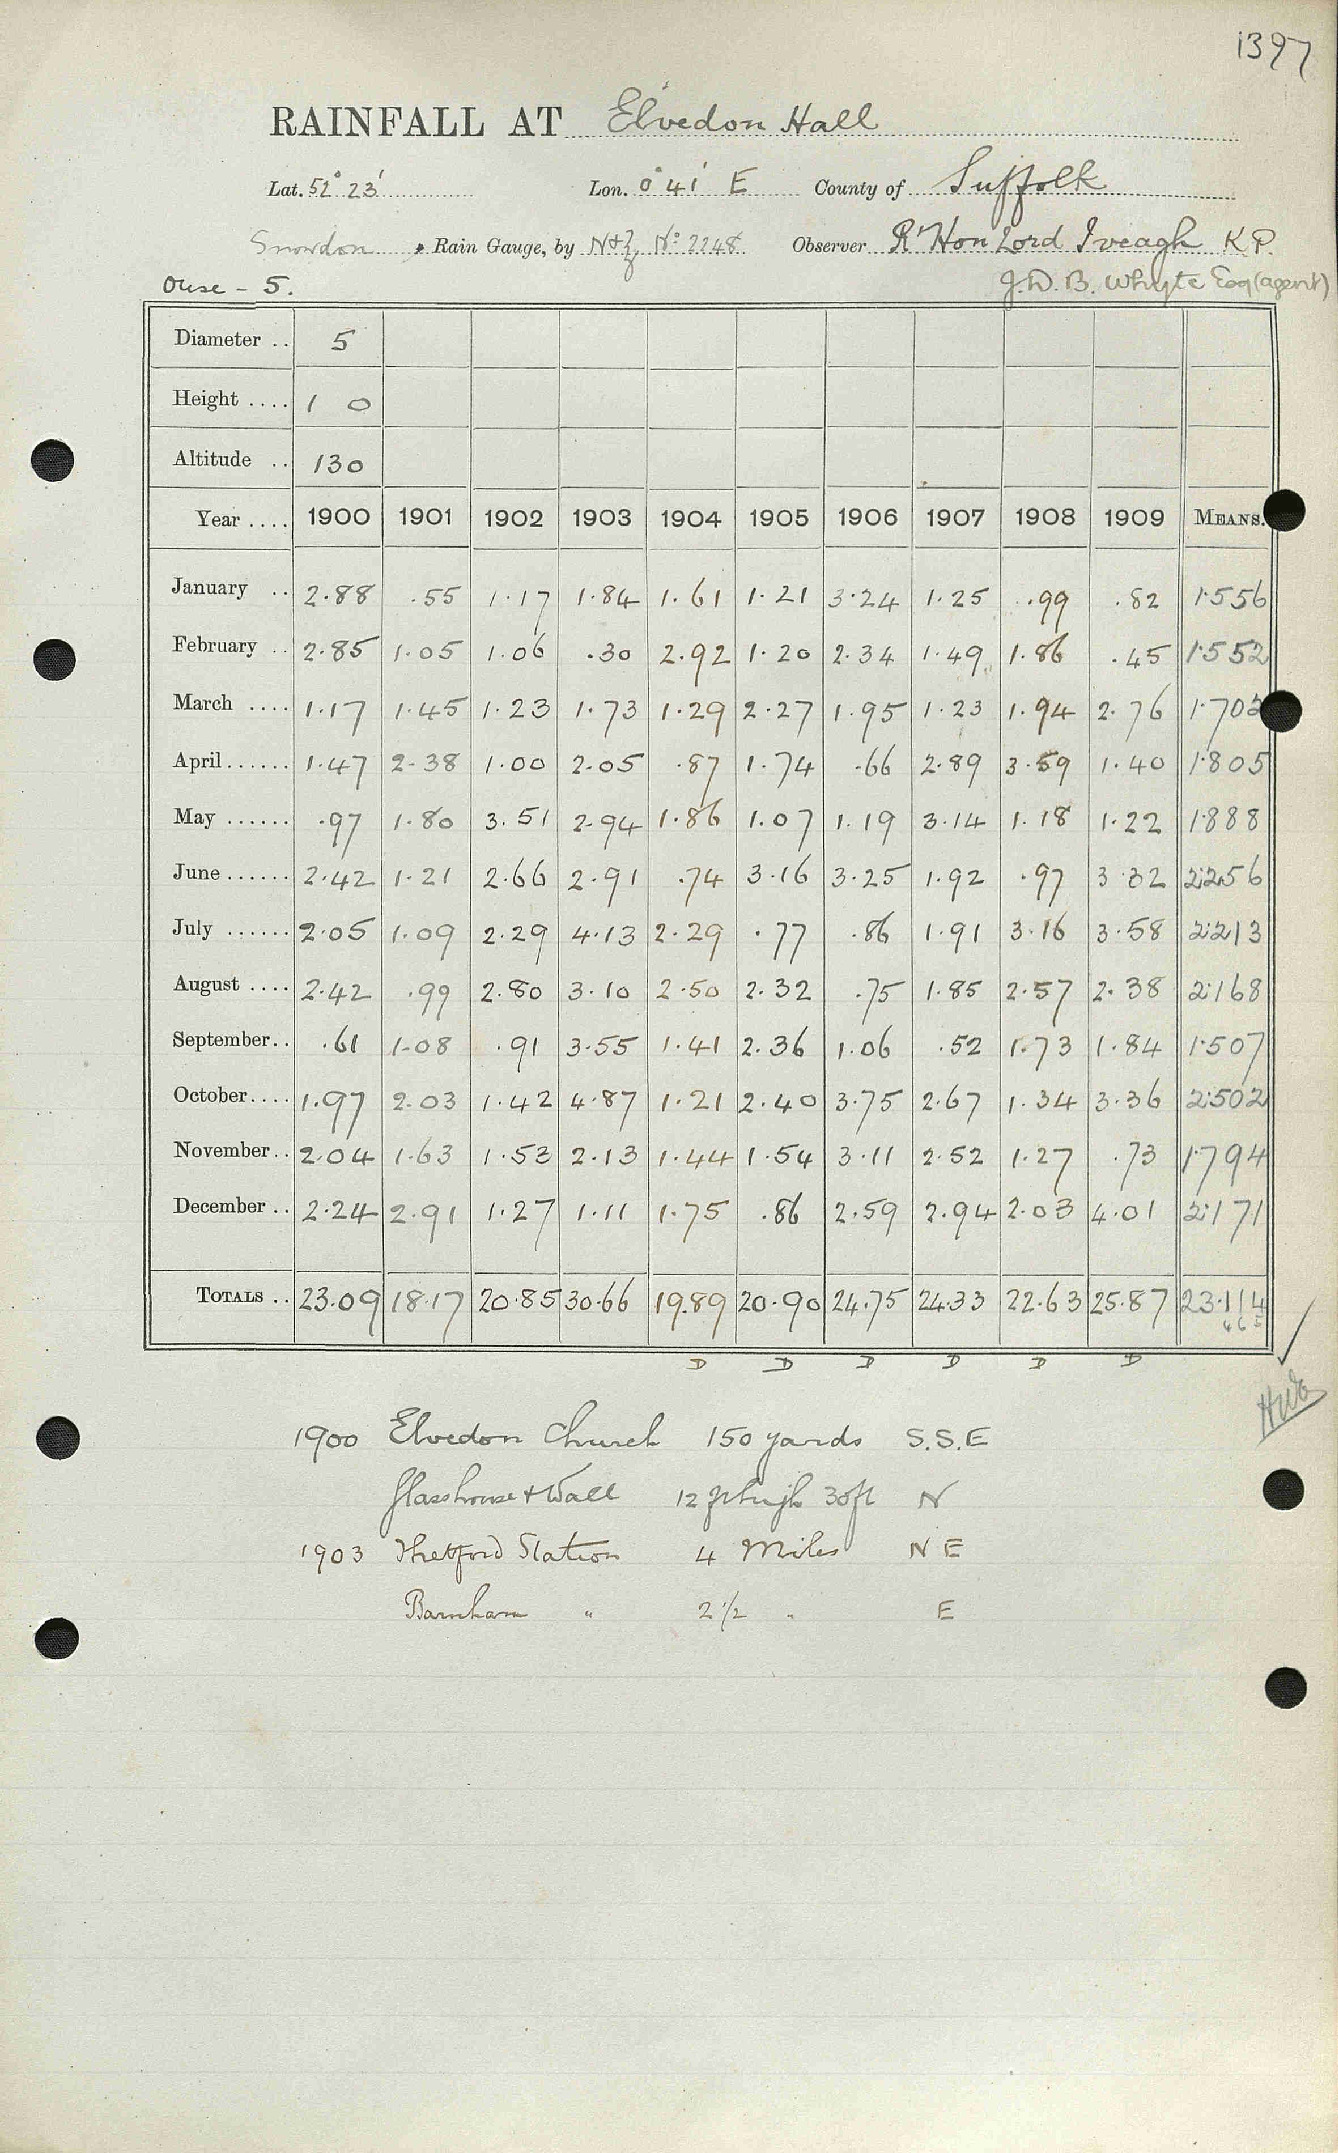 1397
RAINFALL AT Elvedon Hall
Lat. 52° 23' Lon. 0° 41' E County of Suffolk
Snowdon Rain Gauge, by N&Z, No. 2248 Observer Rt Hon Lord Iveagh K P.
Ouse - 5. J. D. B. Whyte Esq (agent)
Diameter .. 5
Height .... 1 0
Altitude .. 130
Year .... 1900 1901 1902 1903 1904 1905 1906 1907 1908 1909 MEANS.
January .. 2.88 .55 1.17 1.84 1.61 1.21 3.24 1.25 .99 .82 1.556
February .. 2.85 1.05 1.06 .30 2.92 1.20 2.34 1.49 1.86 .45 1.552
March .... 1.17 1.45 1.23 1.73 1.29 2.27 1.95 1.23 1.94 2.76 1.702
April...... 1.47 2.38 1.00 2.05 .87 1.74 .66 2.89 3.59 1.40 1.805
May ...... .97 1.80 3.51 2.94 1.86 1.07 1.19 3.14 1.18 1.22 1.888
June...... 2.42 1.21 2.66 2.91 .74 3.16 3.25 1.92 .97 3.32 2.256
July ...... 2.05 1.09 2.29 4.13 2.29 .77 .86 1.91 3.16 3.58 2.213
August .... 2.42 .99 2.80 3.10 2.50 2.32 .75 1.85 2.57 2.38 2.168
September.. .61 1.08 .91 3.55 1.41 2.36 1.06 .52 1.73 1.84 1.507
October.... 1.97 2.03 1.42 4.87 1.21 2.40 3.75 2.67 1.34 3.36 2.502
November.. 2.04 1.63 1.53 2.13 1.44 1.54 3.11 2.52 1.27 .73 1.794
December .. 2.24 2.91 1.27 1.11 1.75 .86 2.59 2.94 2.03 4.01 2.171
TOTALS .. 23.09 18.17 20.85 30.66 19.89 20.90 24.75 24.33 22.63 25.87 23.114
D D D D D D
1900 Elvedon Church 150 yards S.S.E
Glasshouse & Wall 12 ft high 30ft N
1903 Thetford Station 4 Miles N E
Barnham " 2½ " E